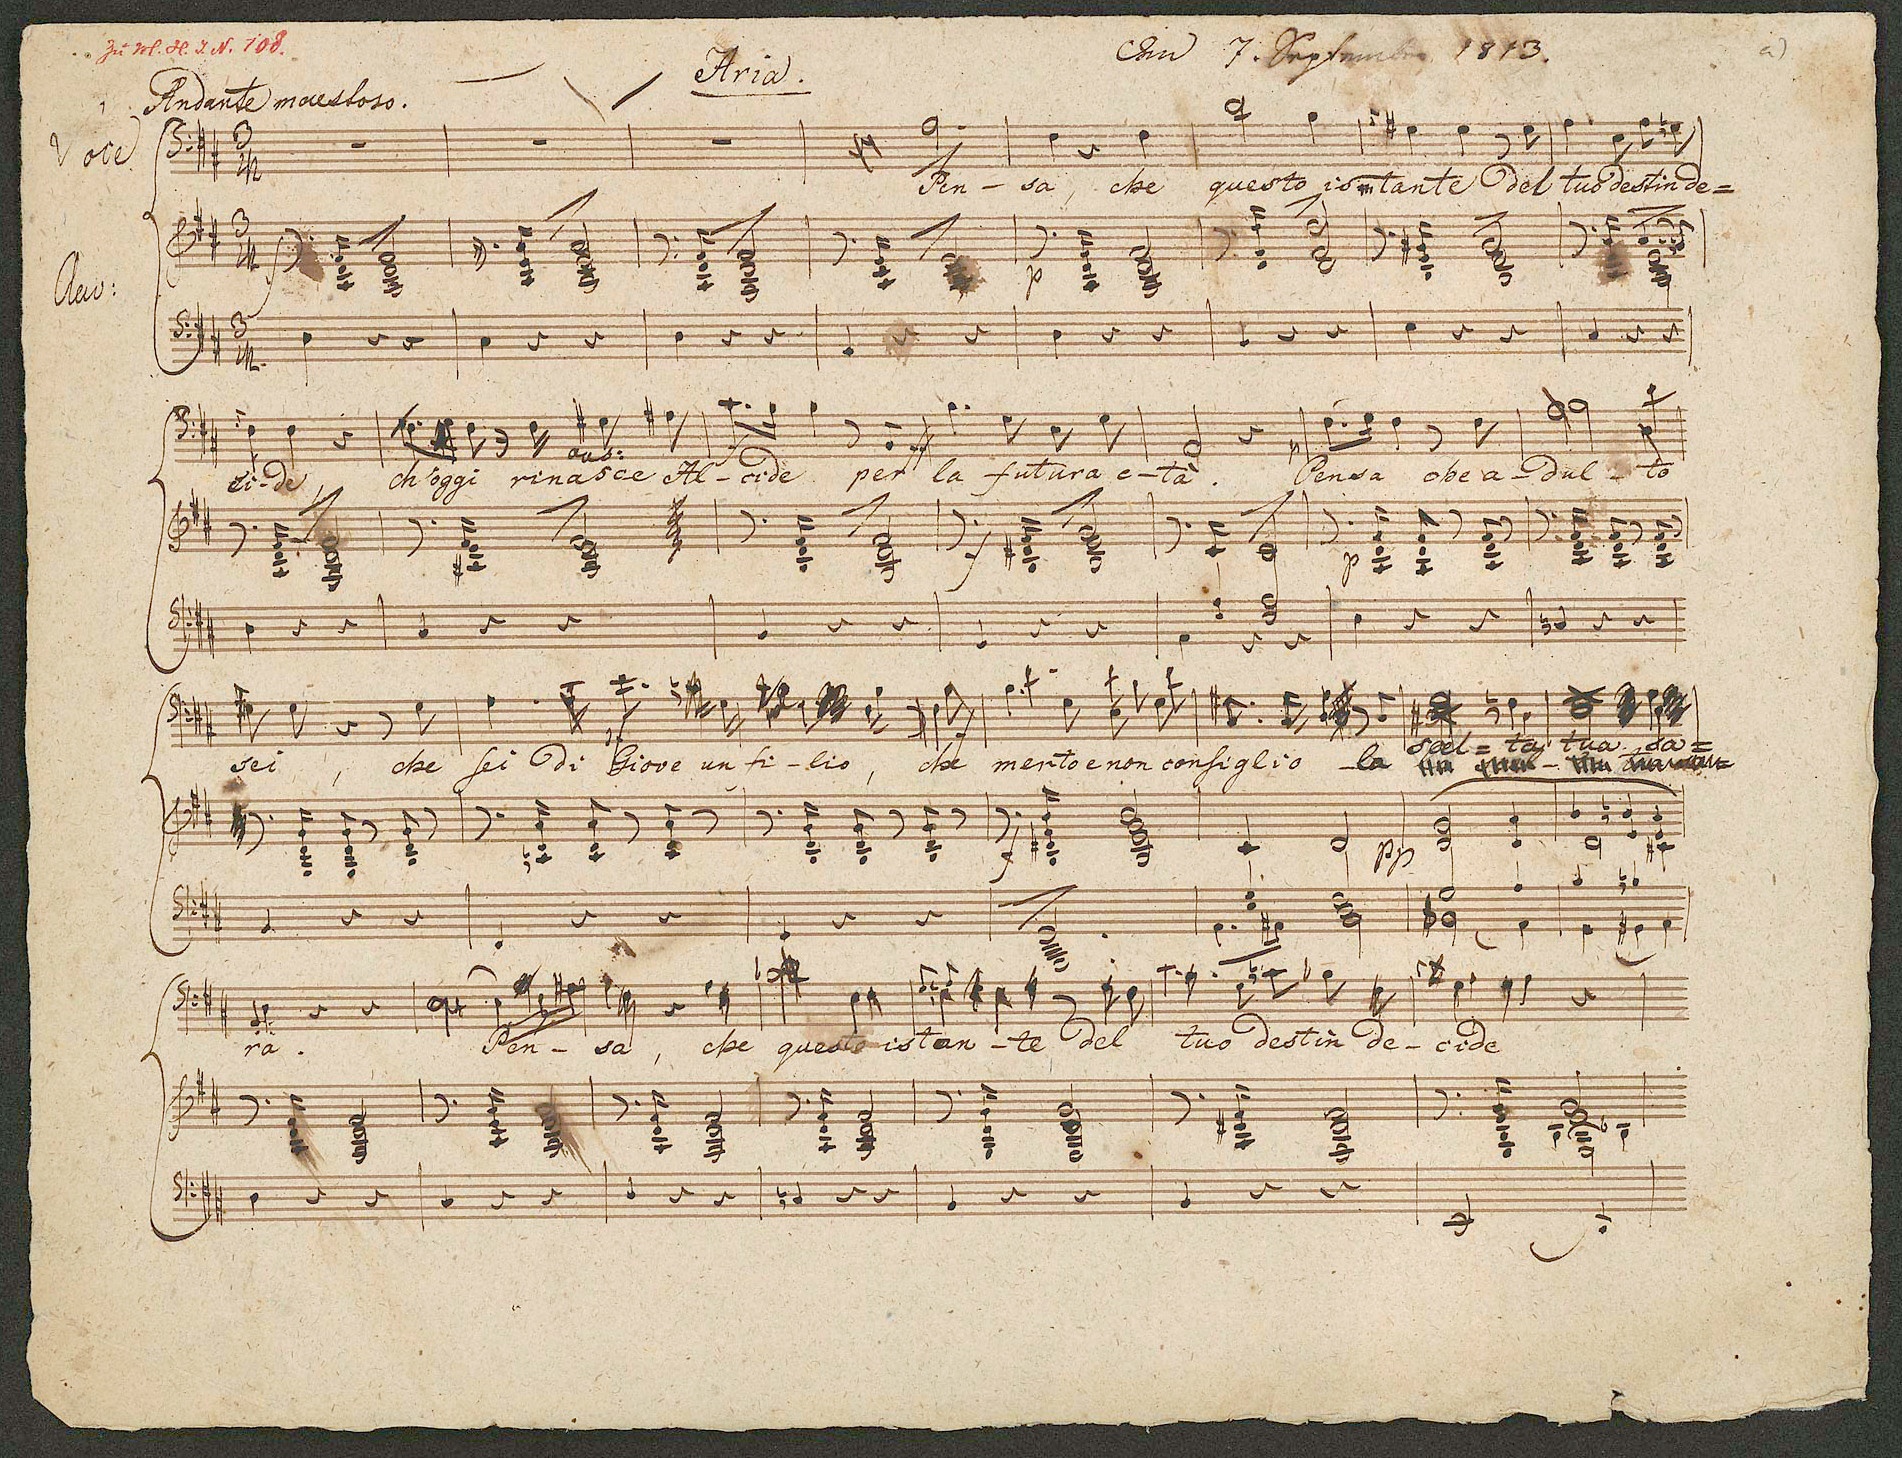 Zu M. H. I. N. 108.
Aria.
Den 7. September 1813.
a)
Andante maestoso.
Voce
Pen - sa, che questo istante del tuo destin de=
Clav:
f p
ci-de, ch'oggi rinasce Al-cide per la futura e-tà. Pensa che a-dul-to
f p
scel=ta tua sa=
sei, che sei di Giove un fi-lio, che merto e non consiglio la
f pp
rà. Pen - sa, che questo istan-te del tuo destin de-cide